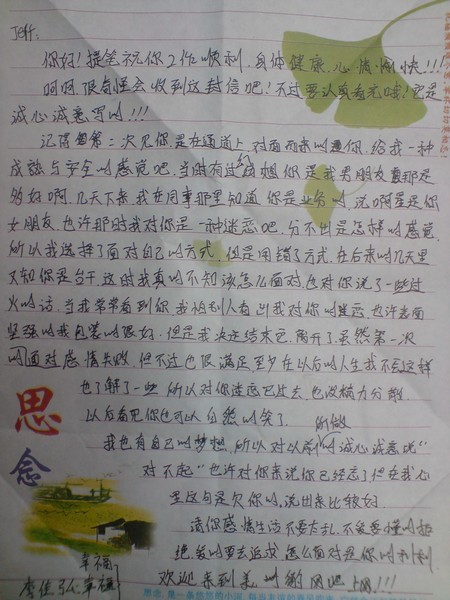 Jeff:
你好!提笔祝你工作顺利,身体健康,心情愉快!!!
呵呵,很奇怪会收到这封信吧!不过要认真看完哦!它是
诚心诚意写的!!!
记得第二次见你是在通道上对面而来的是你,给我一种
成熟与安全的感觉吧,当时有过幻想你是我男朋友那是
多好啊,几天下来,我在同事那里知道你是业务的,说啊芳是你
女朋友,也许那时我对你是一种迷恋吧,分不出是怎样的感觉,
所以我选择了面对自己的方式,但是用错了方式,在后来的几天里
又知你是台干,这时我真的不知该怎么面对,也对你说了一些过
火的话,当我常常看到你我怕别人看出我对你的迷恋,也许表面
坚强的我包装的很好,但是我决定结束它,离开了,虽然第一次
的面对感情失败,但不过也很满足至少在以后的人生我不会这样
也了解了一些,所以对你迷恋已过去,也没精力分散,
以后看见你也可以自然的笑了.
我也有自己的梦想,所以对以前所做的诚心诚意说"
对不起"也许对你来说你已经忘了但在我心
里这句是欠你的,说出来比较好
请你感情生活不要太乱,不爱要懂的拒
绝,爱的要去追求,怎么面对是你的权利
欢迎来到美的韵网吧上网!!!
思
念
幸福